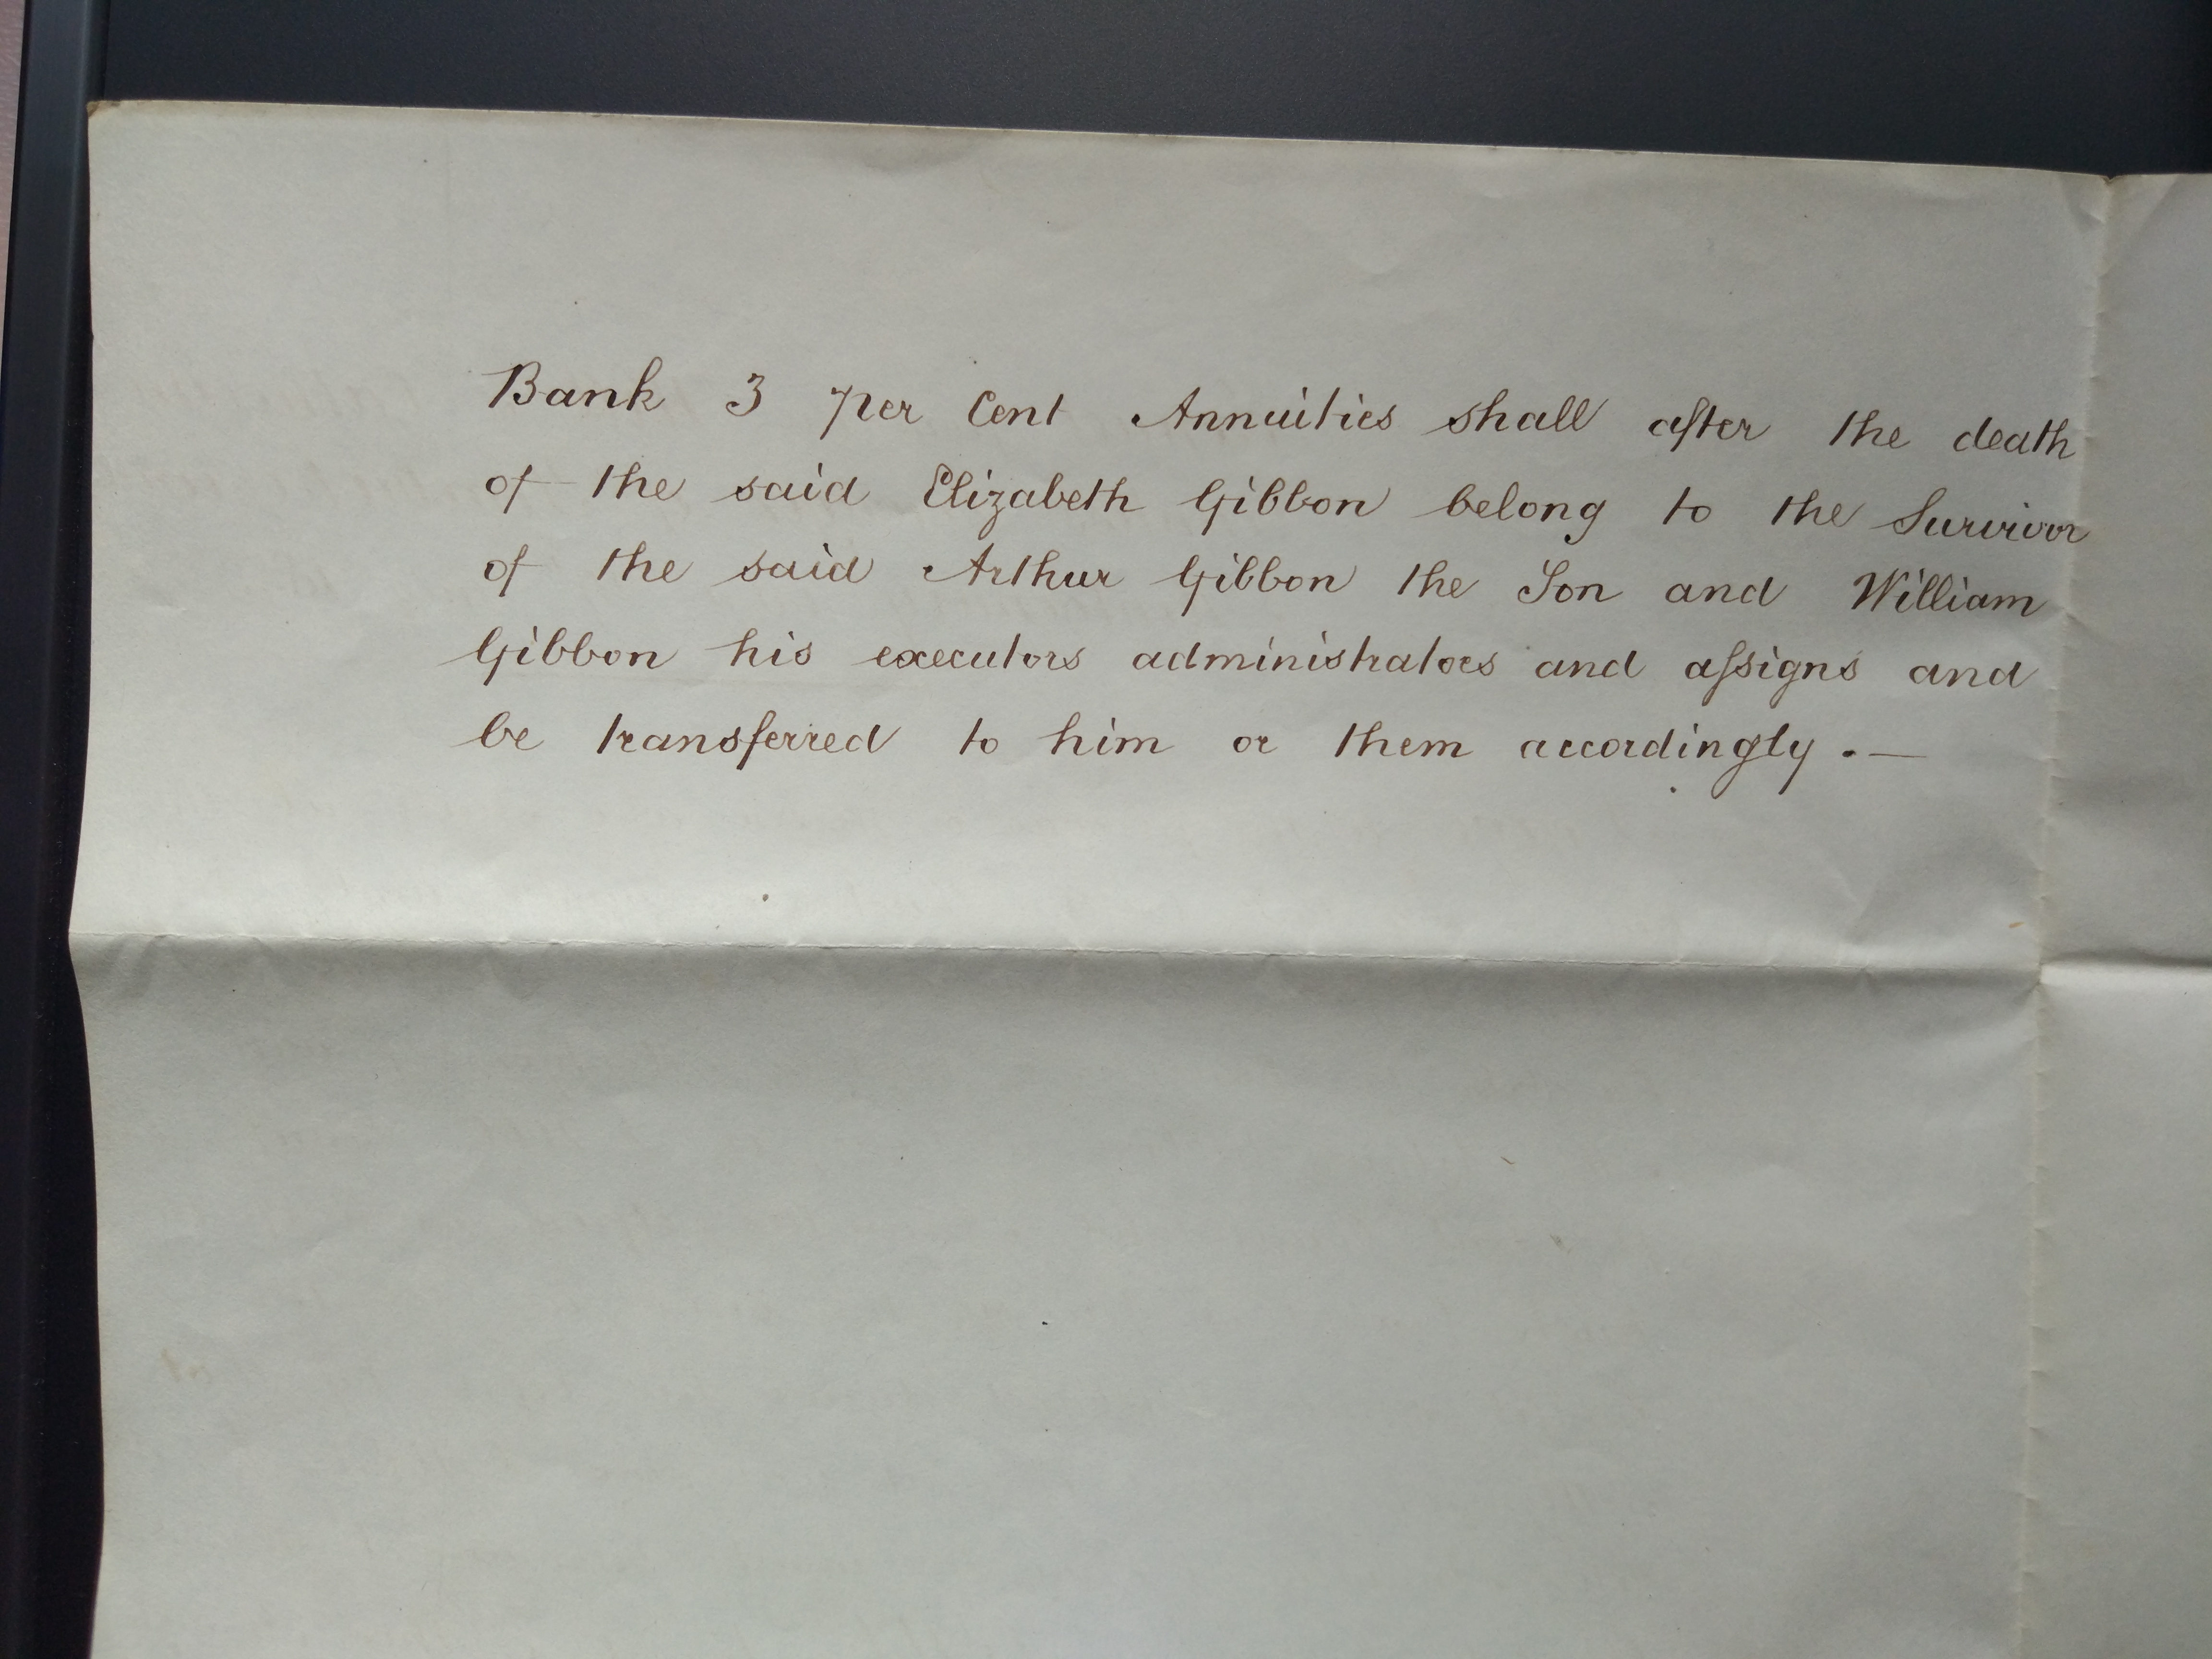 Bank 3 per Cent Annuities shall after the death
of the said Elizabeth Gibbon belong to the Survivor
of the said Arthur Gibbon the Son and William
Gibbon his executors administrators and aſsigns and
be transferred to him or them accordingly . —